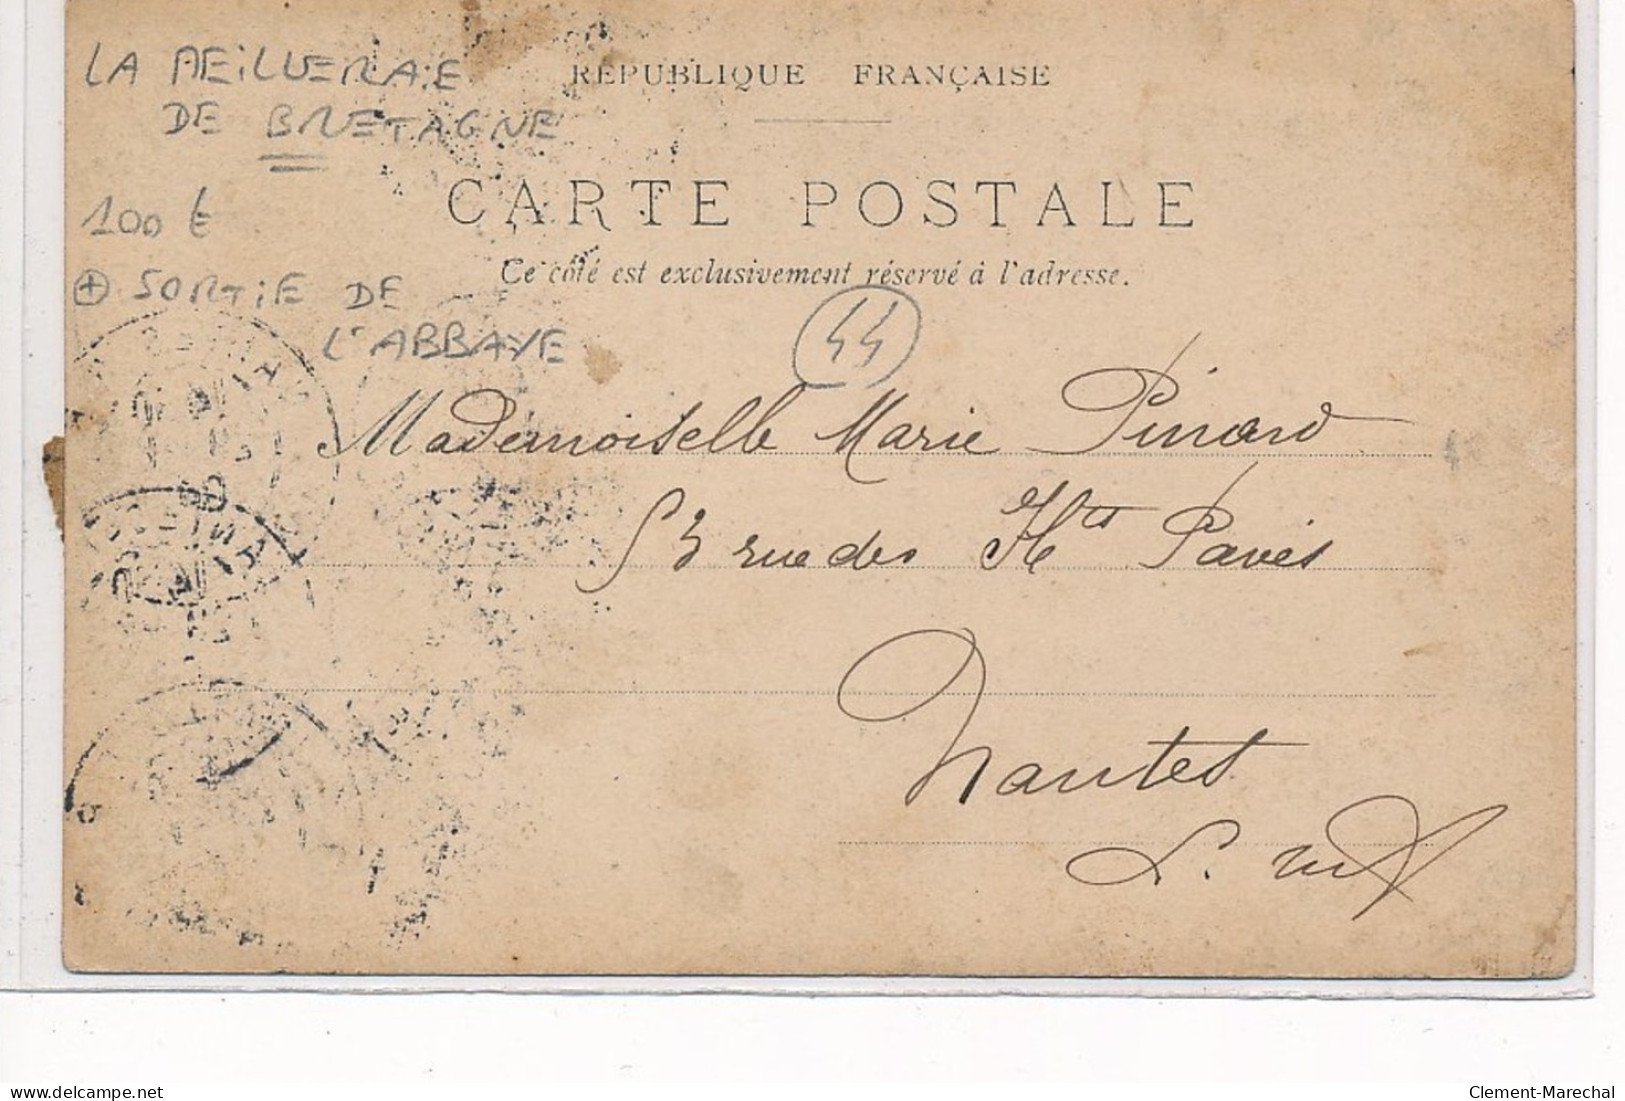 LA MEILLERAIE
DE BRETAGNE
100 €
+ SORTIE DE
L'ABBAYE
RÉPUBLIQUE FRANÇAISE
CARTE POSTALE
Ce côté est exclusivement réservé à l'adresse.
44
Mademoiselle Marie Pinard
53 rue des Hts Pavés
Nantes
L. Inf
delcampe.net
Clement-Marechal